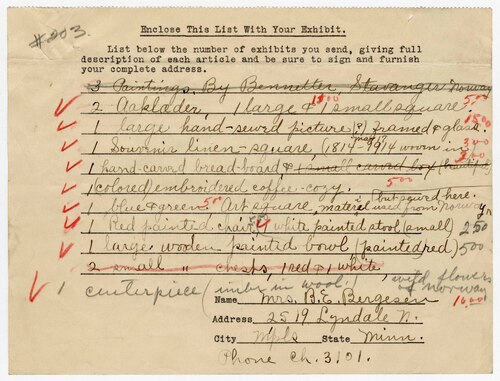 #203.
Enclose This List With Your Exhibit.
List below the number of exhibits you send, giving full
description of each article and be sure to sign and furnish
your complete address.
3 Paintings, By Bennetter, Stavanger Norway
2 Aaklæder, 1 large & 1 small square. 5.00
1 large hand-sewed picture (?) framed & glass. 15.00
1 Souvenir linen-square, (1814-1914 worn in 3.00
1 hand-carved bread-board & 1 small carved box (beautiful)
1 (colored) embroidered coffee-cozy. 5.00
1 blue & green Art square, material used from Norway
but sewed here.
1 Red painted chair & 1 white painted stool (small) 2.50
1 large wooden painted bowl (painted red) 5.00
2 small " chests, 1 red & 1 white
1 centerpiece ( in wool) wild flowers
of Norway
10.00
Name Mrs. B. E. Bergesen
Address 2519 Lyndale N.
City Mpls State Minn.
Phone Ch. 3101.